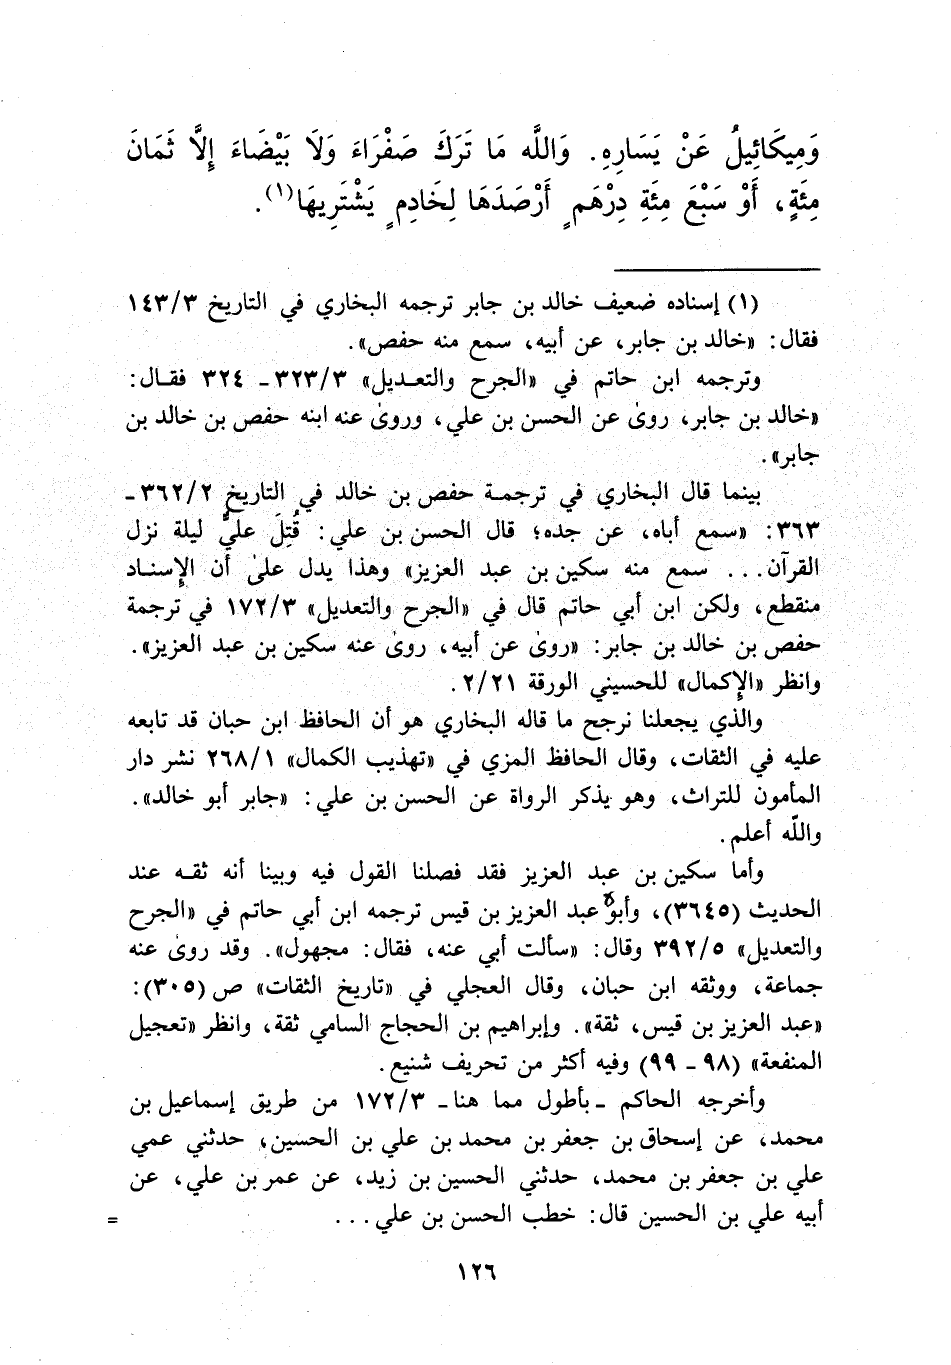 وَمِيكَائِيلُ عَنْ يَسَارِهِ. وَاللَّه مَا تَرَكَ صَفْرَاءَ وَلَا بَيْضَاءَ إِلَّا ثَمَانَ
مِئَةٍ، أَوْ سَبْعَ مِئَةِ دِرْهَمٍ أَرْصَدَهَا لِخَادِمٍ يَشْتَرِيهَا(١).
(١) إسناده ضعيف خالد بن جابر ترجمه البخاري في التاريخ ١٤٣/٣
فقال: «خالد بن جابر، عن أبيه، سمع منه حفص».
وترجمه ابن حاتم في «الجرح والتعديل» ٣٢٣/٣ - ٣٢٤ فقال:
«خالد بن جابر، روىٰ عن الحسن بن علي، وروىٰ عنه ابنه حفص بن خالد بن
جابر».
بينما قال البخاري في ترجمة حفص بن خالد في التاريخ ٣٦٢/٢ -
٣٦٣: «سمع أباه، عن جده؛ قال الحسن بن علي: قُتِلَ عليٌّ ليلة نزل
القرآن... سمع منه سكين بن عبد العزيز» وهذا يدل علىٰ أن الإسناد
منقطع، ولكن ابن أبي حاتم قال في «الجرح والتعديل» ١٧٢/٣ في ترجمة
حفص بن خالد بن جابر: «روىٰ عن أبيه، روىٰ عنه سكين بن عبد العزيز».
وانظر «الإكمال» للحسيني الورقة ٢/٢١.
والذي يجعلنا نرجح ما قاله البخاري هو أن الحافظ ابن حبان قد تابعه
عليه في الثقات، وقال الحافظ المزي في «تهذيب الكمال» ٢٦٨/١ نشر دار
المأمون للتراث، وهو يذكر الرواة عن الحسن بن علي: «جابر أبو خالد».
واللّه أعلم.
وأما سكين بن عبد العزيز فقد فصلنا القول فيه وبينا أنه ثقه عند
الحديث (٣٦٤٥)، وأبوه عبد العزيز بن قيس ترجمه ابن أبي حاتم في «الجرح
والتعديل» ٣٩٢/٥ وقال: «سألت أبي عنه، فقال: مجهول». وقد روىٰ عنه
جماعة، ووثقه ابن حبان، وقال العجلي في «تاريخ الثقات» ص (٣٠٥):
«عبد العزيز بن قيس، ثقة». وإبراهيم بن الحجاج السامي ثقة، وانظر «تعجيل
المنفعة» (٩٨ - ٩٩) وفيه أكثر من تحريف شنيع.
وأخرجه الحاكم - بأطول مما هنا- ١٧٢/٣ من طريق إسماعيل بن
محمد، عن إسحاق بن جعفر بن محمد بن علي بن الحسين، حدثني عمي
علي بن جعفر بن محمد، حدثني الحسين بن زيد، عن عمر بن علي، عن
أبيه علي بن الحسين قال: خطب الحسن بن علي... =
١٢٦